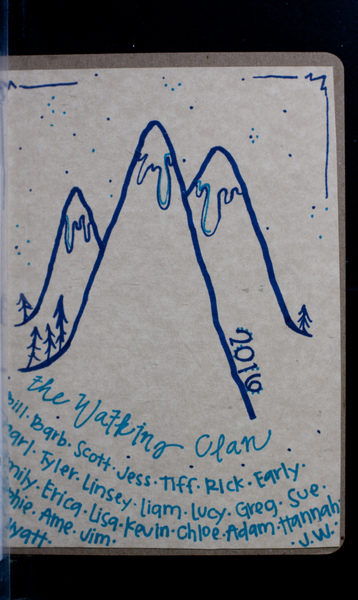 2016
the Watking Clan
bill. Barb. Scott. Jess. Tiff. Rick. Early.
Tyler. Linsey. liam. lucy. Greg. Sue.
Erica. Lisa. Kevin. Chloe. Adam. Hannah.
Ame. Jim. J.W.
Wyatt.